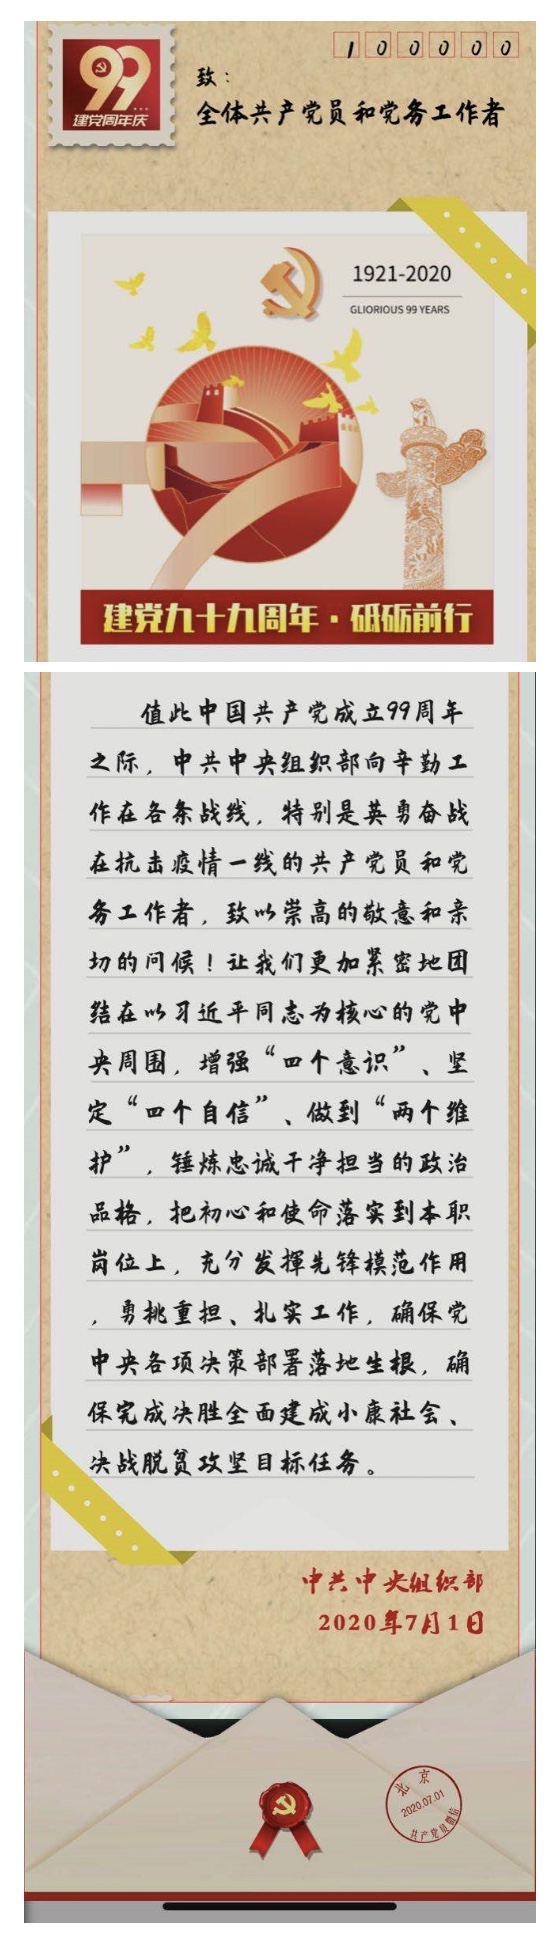 100000
99
建党周年庆
致:
全体共产党员和党务工作者
1921-2020
GLIORIOUS 99 YEARS
建党九十九周年·砥砺前行
值此中国共产党成立99周年
之际，中共中央组织部向辛勤工
作在各条战线，特别是英勇奋战
在抗击疫情一线的共产党员和党
务工作者，致以崇高的敬意和亲
切的问候！让我们更加紧密地团
结在以习近平同志为核心的党中
央周围，增强“四个意识”、坚
定“四个自信”、做到“两个维
护”，锤炼忠诚干净担当的政治
品格，把初心和使命落实到本职
岗位上，充分发挥先锋模范作用
，勇挑重担、扎实工作，确保党
中央各项决策部署落地生根，确
保完成决胜全面建成小康社会、
决战脱贫攻坚目标任务。
中共中央组织部
2020年7月1日
北京
2020.07.01
共产党员微信